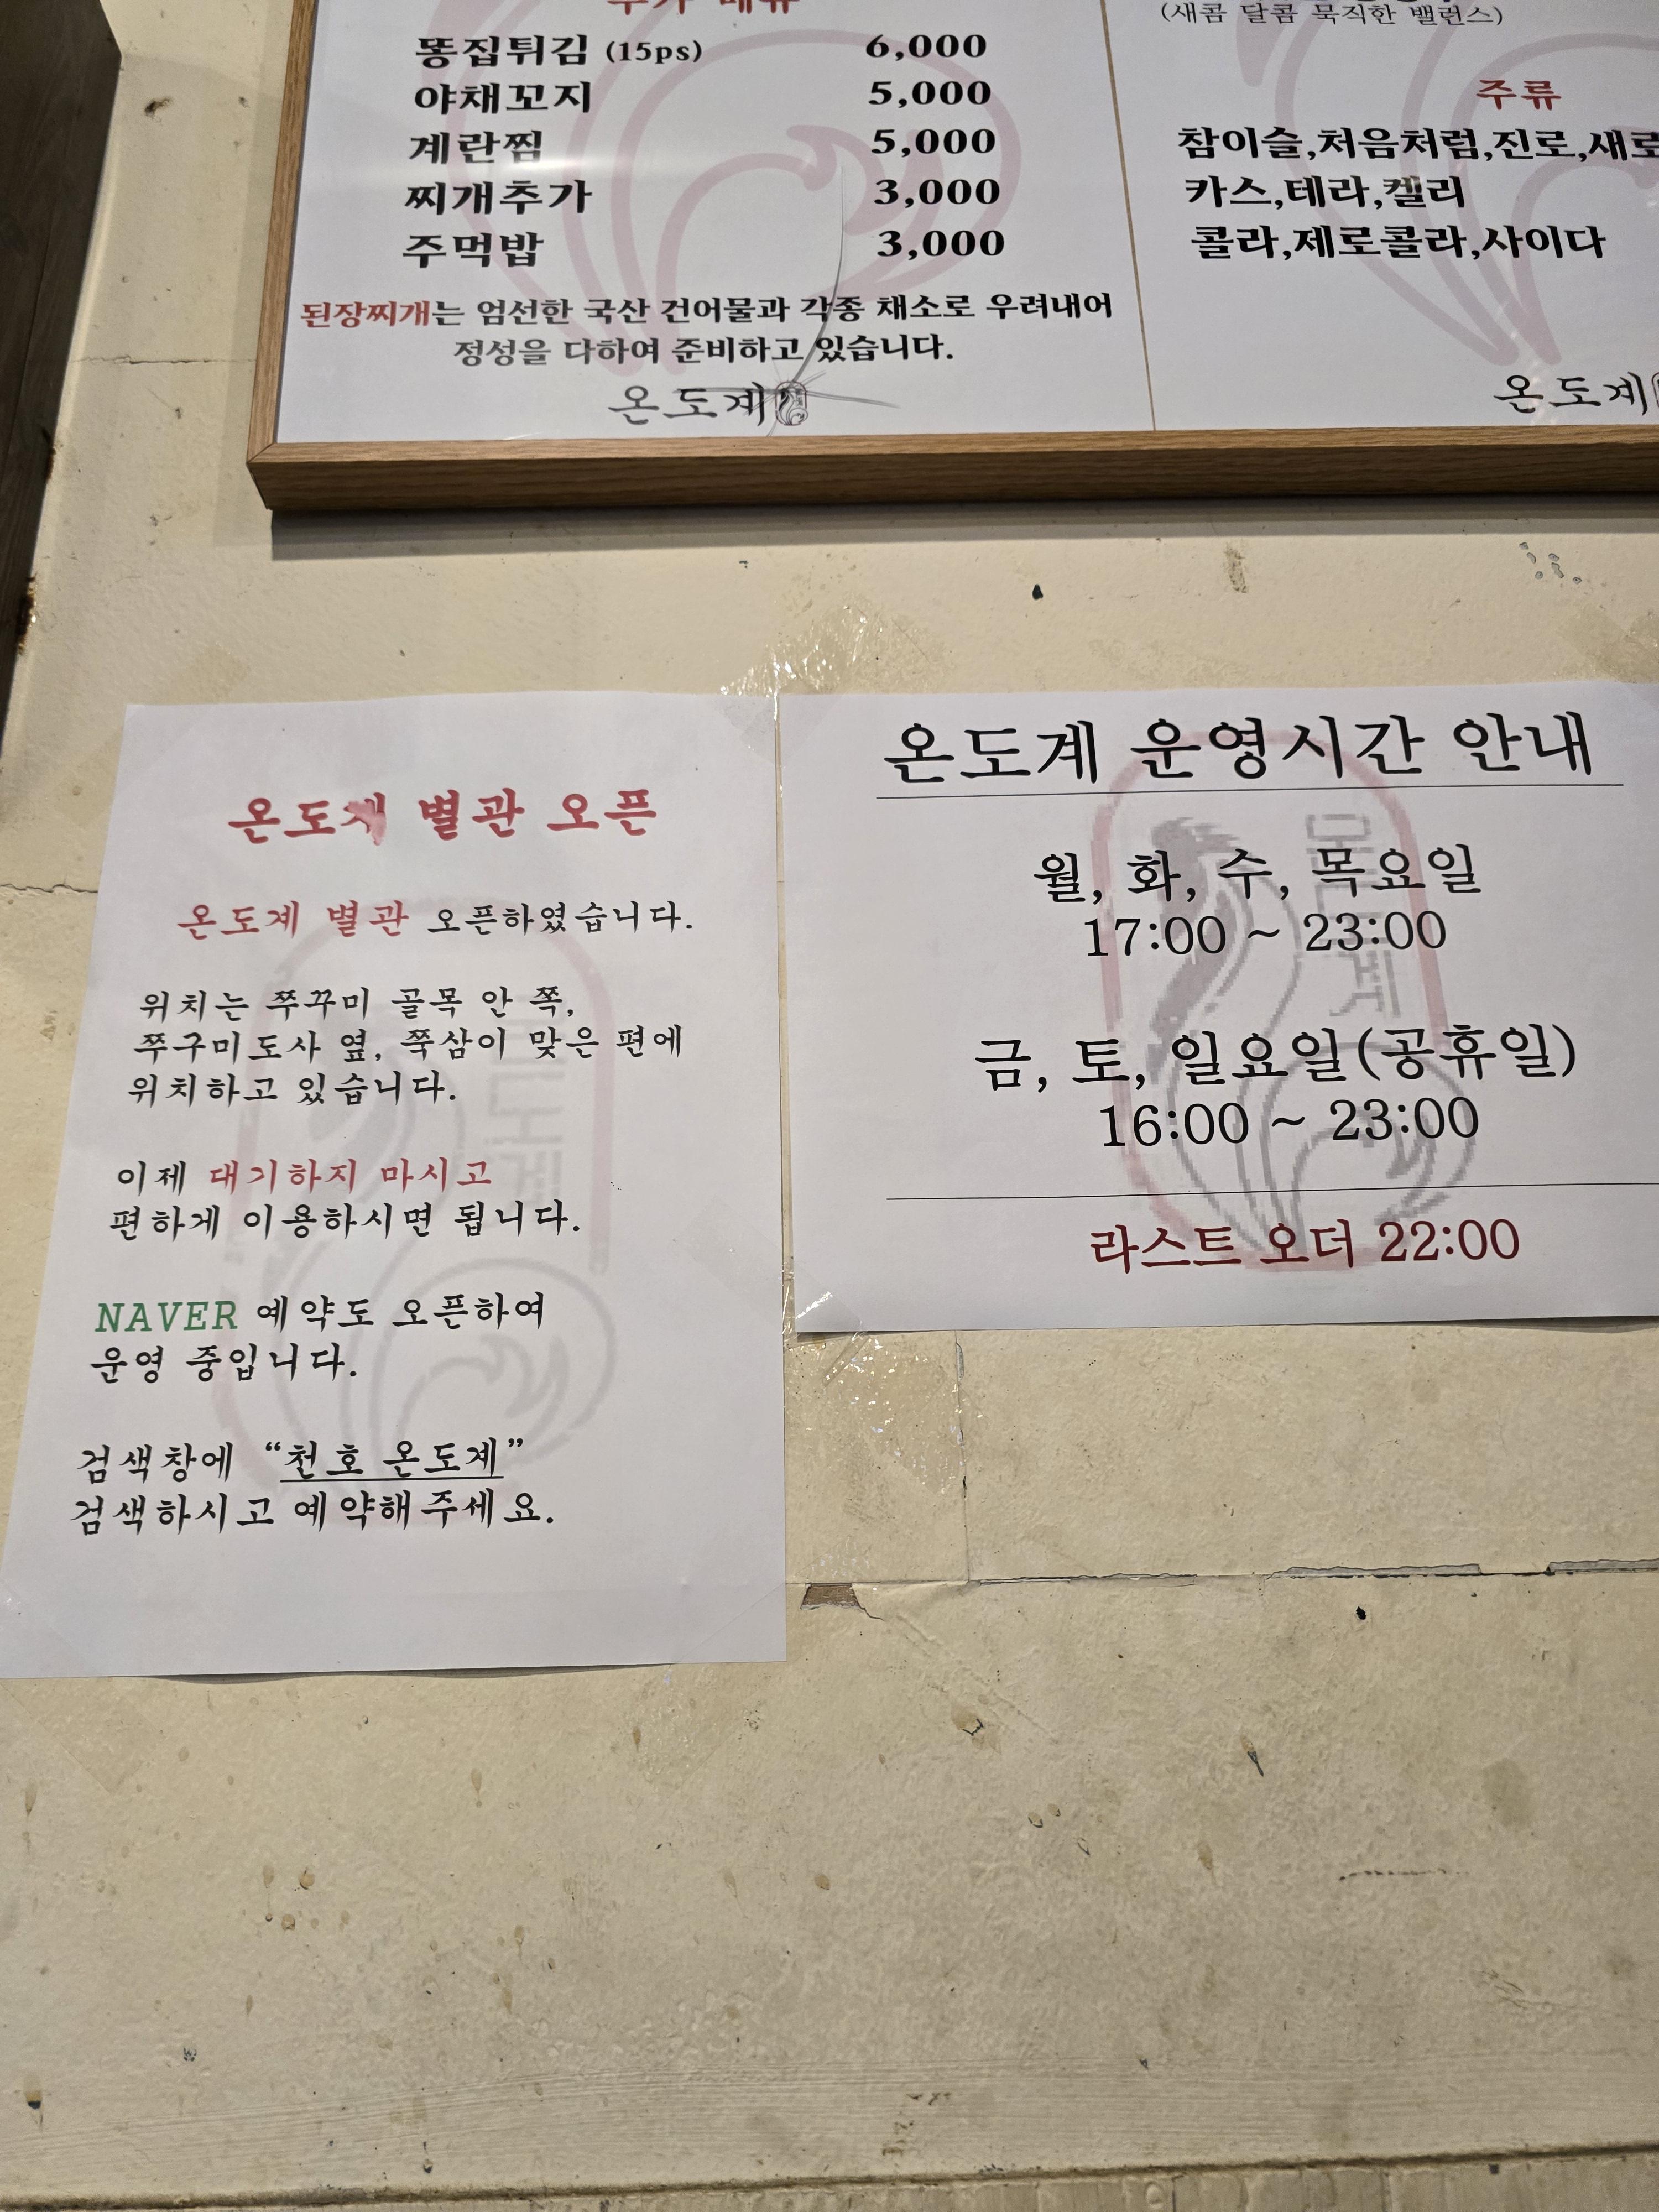 추가 메뉴
똥집튀김 (15ps) 6,000
야채꼬지 5,000
계란찜 5,000
찌개추가 3,000
주먹밥 3,000
된장찌개는 엄선한 국산 건어물과 각종 채소로 우려내어
정성을 다하여 준비하고 있습니다.
온도계
(새콤 달콤 묵직한 밸런스)
주류
참이슬,처음처럼,진로,새로
카스,테라,켈리
콜라,제로콜라,사이다
온도계
온도계 별관 오픈
온도계 별관 오픈하였습니다.
위치는 쭈꾸미 골목 안 쪽,
쭈구미도사 옆, 쭉삼이 맞은 편에
위치하고 있습니다.
이제 대기하지 마시고
편하게 이용하시면 됩니다.
NAVER 예약도 오픈하여
운영 중입니다.
검색창에 “천호 온도계”
검색하시고 예약해주세요.
온도계 운영시간 안내
월, 화, 수, 목요일
17:00 ~ 23:00
금, 토, 일요일(공휴일)
16:00 ~ 23:00
라스트 오더 22:00